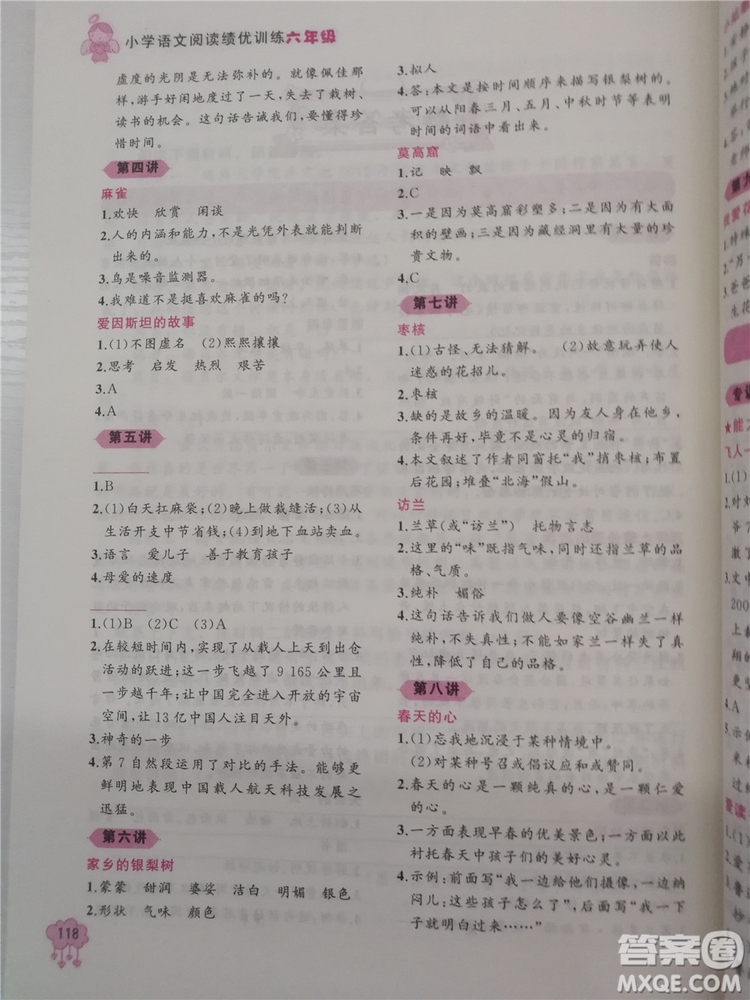 小学语文阅读绩优训练六年级
虚度的光阴是无法弥补的。就像佩佳那
样,游手好闲地度过了一天,失去了栽树、
读书的机会。这句话告诫我们,要懂得珍
惜时间。
第四讲
麻雀
1.欢快 欣赏 闲谈
2.人的内涵和能力,不是光凭外表就能判断
出来的。
3.鸟是噪音监测器。
4.我难道不是挺喜欢麻雀的吗?
爱因斯坦的故事
1.(1)不图虚名 (2)熙熙攘攘
2.思考 启发 热烈 艰苦
3.A
4.A
第五讲
1.B
2.(1)白天扛麻袋;(2)晚上做裁缝活;(3)从
生活开支中节省钱;(4)到地下血站卖血。
3.语言 爱儿子 善于教育孩子
4.母爱的速度
1.(1)B (2)C (3)A
2.在较短时间内,实现了从载人上天到出仓
活动的跃进;这一步飞越了9 165公里且
一步越千年;让中国完全进入开放的宇宙
空间,让13亿中国人注目天外。
3.神奇的一步
4.第7自然段运用了对比的手法。能够更
鲜明地表现中国载人航天科技发展之
迅猛。
第六讲
家乡的银梨树
1.蒙蒙 甜润 婆娑 洁白 明媚 银色
2.形状 气味 颜色
118
3.拟人
4.答:本文是按时间顺序来描写银梨树的。
可以从阳春三月、五月、中秋时节等表明
时间的词语中看出来。
莫高窟
1.记 映 飘
2.C
3.一是因为莫高窟彩塑多;一是因为有大面
积的壁画;一是因为藏经洞里有大量的珍
贵文物。
4.C
第七讲
枣核
1.(1)古怪、无法猜解。 (2)故意玩弄使人
迷惑的花招儿。
2.枣核
3.缺的是故乡的温暖。因为友人身在他乡,
条件再好,毕竟不是心灵的归宿。
4.本文叙述了作者同窗托“我”捎枣核;布置
后花园;堆叠“北海”假山。
访兰
1.兰草(或“访兰”) 托物言志
2.这里的“味”既指气味,同时还指兰草的品
格、气质。
3.纯朴 媚俗
4.这句话告诉我们做人要像空谷幽兰一样
纯朴,不失真性;不能如家兰一样失了真
性,降低了自己的品格。
第八讲
春天的心
1.(1)忘我地沉浸于某种情境中。
(2)对某种号召或倡议应和或赞同。
2.春天的心是一颗纯真的心,是一颗仁爱
的心。
3.一方面表现早春的优美景色;一方面以此
衬托春天中孩子们的美好心灵。
4.示例:前面写“我一边给他们摄像,一边纳
闷儿:这些孩子怎么了”,后面写“我一下子
就明白过来……”
答案圈
MXQE.COM